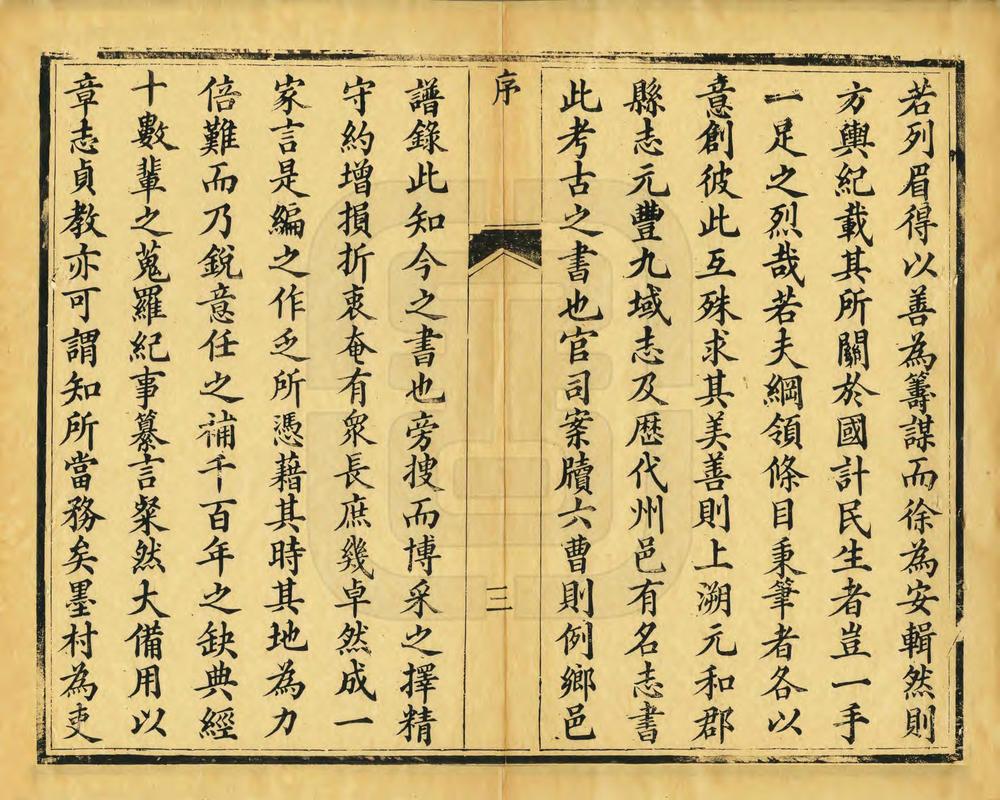 若列眉得以善為籌謀而徐為安輯然則
方輿紀載其所關於國計民生者豈一手
一足之烈哉若夫綱領條目秉筆者各以
意創彼此互殊求其美善則上溯元和郡
縣志元豐九域志及歷代州邑有名志書
此考古之書也官司案牘六曹則例鄉邑
序
三
譜錄此知今之書也旁搜而博采之擇精
守約增損折衷奄有眾長庶幾卓然成一
家言是編之作乏所憑藉其時其地為力
倍難而乃銳意任之補千百年之缺典經
十數輩之蒐羅紀事纂言粲然大備用以
章志貞教亦可謂知所當務矣墨村為吏